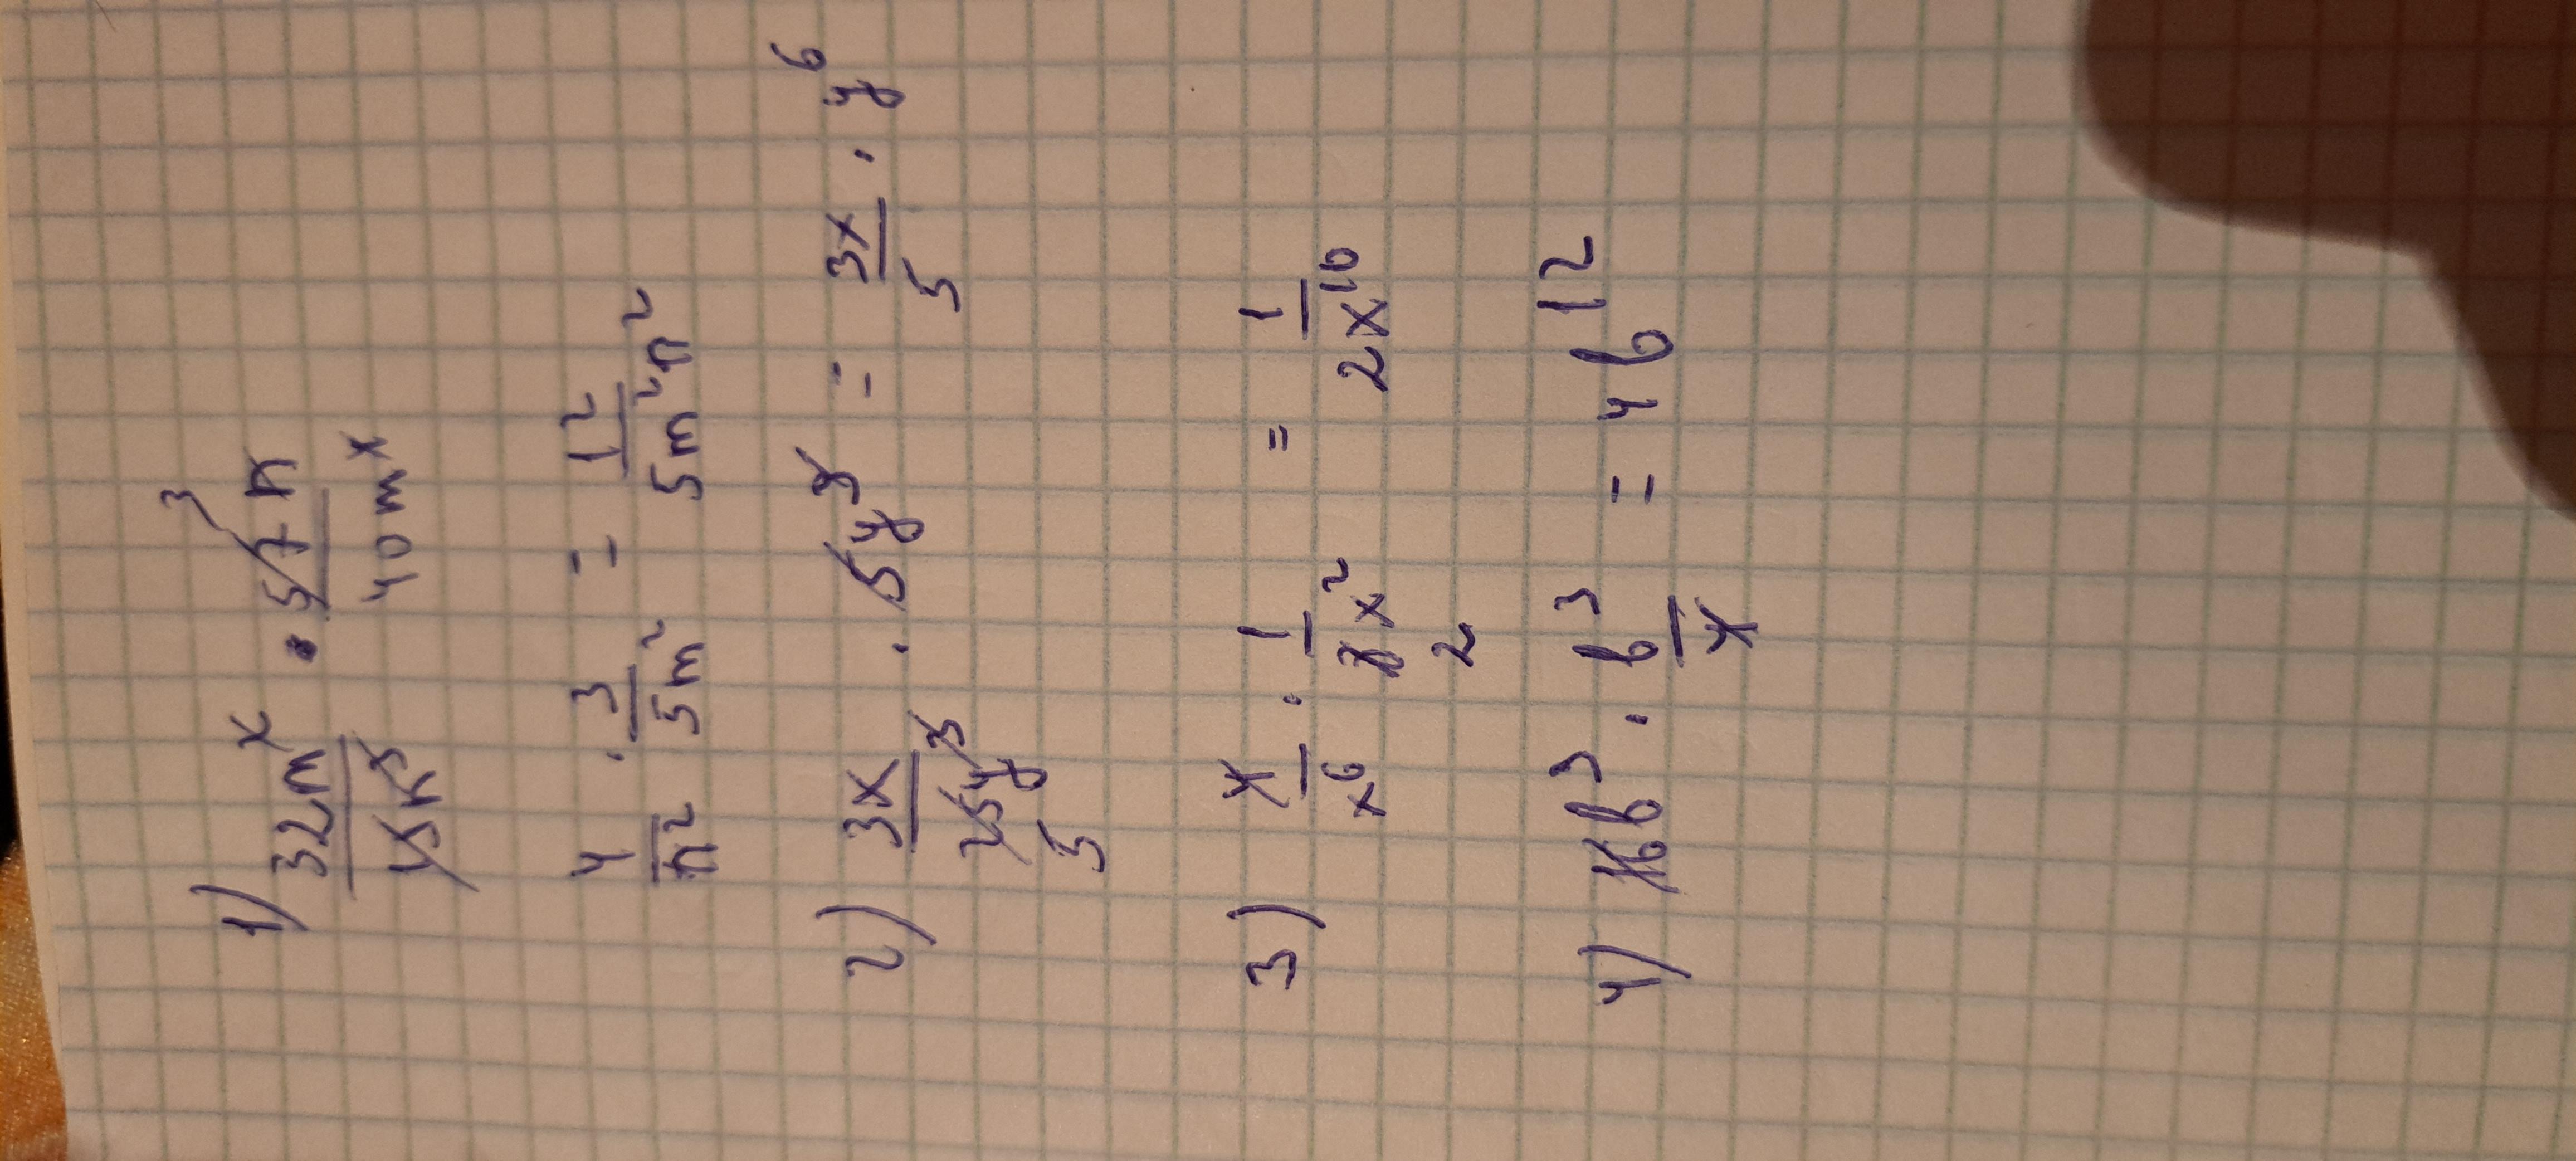 1) 32m^x/15n^3 · 57n/40m^x 3
4/n^2 · 3/5m^2 = 12/5m^2n^2
2) 3x/25y^3 · 5y^3 = 3x/5 · y^6
5
3) 4/x^6 · 1/8x^2 = 1/2x^10
2
4) 16b^3 · b^3/4 = 4b^12